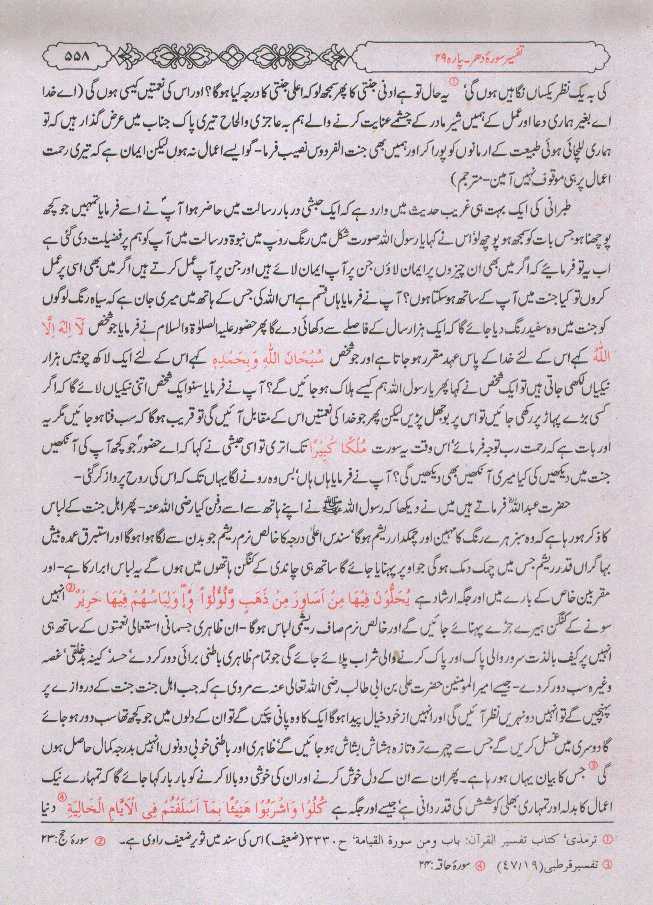 تفسیر سورۂ دھر۔ پارہ ۲۹
۵۵۸
کی بہ یک نظر یکساں نگاہیں ہوں گی ① یہ حال تو ہے ادنیٰ جنتی کا پھر سمجھ لو کہ اعلیٰ جنتی کا درجہ کیا ہوگا؟ اور اس کی نعمتیں کیسی ہوں گی (اے خدا
اے بغیر ہماری دعا اور عمل کے ہمیں شیر مادر کے چشمے عنایت کرنے والے ہم بہ عاجزی والحاح تیری پاک جناب میں عرض گذار ہیں کہ تو
ہماری للچائی ہوئی طبیعت کے ارمانوں کو پورا کر اور ہمیں بھی جنت الفردوس نصیب فرما- گو ایسے اعمال نہ ہوں لیکن ایمان ہے کہ تیری رحمت
اعمال پر ہی موقوف نہیں آمین- مترجم)
طبرانی کی ایک بہت ہی غریب حدیث میں وارد ہے کہ ایک حبشی دربار رسالت میں حاضر ہوا آپؐ نے اسے فرمایا تمہیں جو کچھ
پوچھنا ہو جس بات کو سمجھو پوچھ لو اس نے کہا یا رسول اللہ صورت شکل میں رنگ روپ میں نبوۃ و رسالت میں آپ کو ہم پر فضیلت دی گئی ہے
اب یہ تو فرمایئے کہ اگر میں بھی ان چیزوں پر ایمان لاؤں جن پر آپ ایمان لائے ہیں اور جن پر آپ عمل کرتے ہیں اگر میں بھی اسی پر عمل
کروں تو کیا جنت میں آپ کے ساتھ ہو سکتا ہوں؟ آپ نے فرمایا ہاں قسم ہے اس اللہ کی جس کے ہاتھ میں میری جان ہے کہ سیاہ رنگ لوگوں
کو جنت میں وہ سفید رنگ دیا جائے گا کہ ایک ہزار سال کے فاصلے سے دکھائی دے گا پھر حضور علیہ الصلوٰۃ والسلام نے فرمایا جو شخص لَا اِلٰهَ اِلَّا
اللّٰهُ کہے اس کے لئے خدا کے پاس عہد مقرر ہو جاتا ہے اور جو شخص سُبْحَانَ اللّٰهِ وَبِحَمْدِهٖ کہے اس کے لئے ایک لاکھ چوبیس ہزار
نیکیاں لکھی جاتی ہیں تو ایک شخص نے کہا پھر یا رسول اللہ ہم کیسے ہلاک ہو جائیں گے؟ آپ نے فرمایا سنو ایک شخص اتنی نیکیاں لائے گا کہ اگر
کسی بڑے پہاڑ پر رکھی جائیں تو اس پر بوجھل پڑیں لیکن پھر جو خدا کی نعمتیں اس کے مقابل آئیں گی تو قریب ہوگا کہ سب فنا ہو جائیں مگر یہ
اور بات ہے کہ رحمت رب توجہ فرمائے' اس وقت یہ سورت مُلْكًا كَبِيْرًا تک اتری تو اسی حبشی نے کہا کہ اے حضورؐ جو کچھ آپ کی آنکھیں
جنت میں دیکھیں گی کیا میری آنکھیں بھی دیکھیں گی؟ آپ نے فرمایا ہاں ہاں' بس وہ رونے لگا یہاں تک کہ اس کی روح پرواز کر گئی-
حضرت عبداللہؓ فرماتے ہیں میں نے دیکھا کہ رسول اللہ ﷺ نے اپنے ہاتھ سے اسے دفن کیا رضی اللہ عنہ- پھر اہل جنت کے لباس
کا ذکر ہو رہا ہے کہ وہ سبز ہرے رنگ کا مہین اور چمکدار ریشم ہوگا' سندس اعلیٰ درجہ کا خالص نرم ریشم جو بدن سے لگا ہوا ہوگا اور استبرق عمدہ بیش
بہا گراں قدر ریشم جس میں چمک دمک ہوگی جو اوپر پہنایا جائے گا ساتھ ہی چاندی کے کنگن ہاتھوں میں ہوں گے یہ لباس ابرار کا ہے- اور
مقربین خاص کے بارے میں اور جگہ ارشاد ہے يُحَلَّوْنَ فِيْهَا مِنْ اَسَاوِرَ مِنْ ذَهَبٍ وَّلُؤْلُؤًا وَّلِبَاسُهُمْ فِيْهَا حَرِيْرٌ ② انہیں
سونے کے کنگن ہیرے جڑے پہنائے جائیں گے اور خالص نرم صاف ریشمی لباس ہوگا- ان ظاہری جسمانی استعمالی نعمتوں کے ساتھ ہی
انہیں پر کیف بالذت سرور والی پاک اور پاک کرنے والی شراب پلائی جائے گی جو تمام ظاہری باطنی برائی دور کر دے' حسد' کینہ بدخلقی' غصہ
وغیرہ سب دور کر دے- جیسے امیر المومنین حضرت علی بن ابی طالب رضی اللہ تعالیٰ عنہ سے مروی ہے کہ جب اہل جنت جنت کے دروازے پر
پہنچیں گے تو انہیں دو نہریں نظر آئیں گی اور انہیں از خود خیال پیدا ہوگا ایک کا وہ پانی پیئیں گے تو ان کے دلوں میں جو کچھ تھا سب دور ہو جائے
گا دوسری میں غسل کریں گے جس سے چہرے تروتازہ ہشاش بشاش ہو جائیں گے' ظاہری اور باطنی خوبی دونوں انہیں بدرجہ کمال حاصل ہوں
گی ③ جس کا بیان یہاں ہو رہا ہے۔ پھر ان سے ان کے دل خوش کرنے اور ان کی خوشی دوبالا کرنے کو بار بار کہا جائے گا کہ تمہارے نیک
اعمال کا بدلہ اور تمہاری بھلی کوشش کی قدر دانی ہے' جیسے اور جگہ ہے كُلُوْا وَاشْرَبُوْا هَنِيْٓئًا بِمَآ اَسْلَفْتُمْ فِي الْاَيَّامِ الْخَالِيَةِ ④ دنیا
① ترمذی' کتاب تفسیر القرآن: باب ومن سورۃ القیامۃ' ح۳۳۳۰ (ضعیف) اس کی سند میں ثویر ضعیف راوی ہے۔ ② سورۂ حج:۲۳
③ تفسیر قرطبی (۴۷/۱۹) ④ سورۂ حاقہ:۲۴